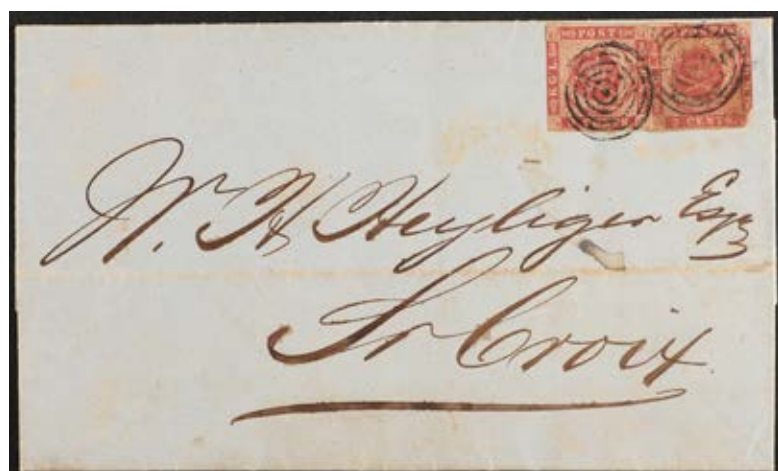 POST
K.G.L.
3 CENTS
W. H. Heyliger Esqr
St Croix